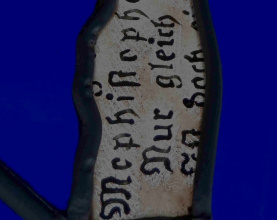 Mephistophe
Nur gleich
Ist doch